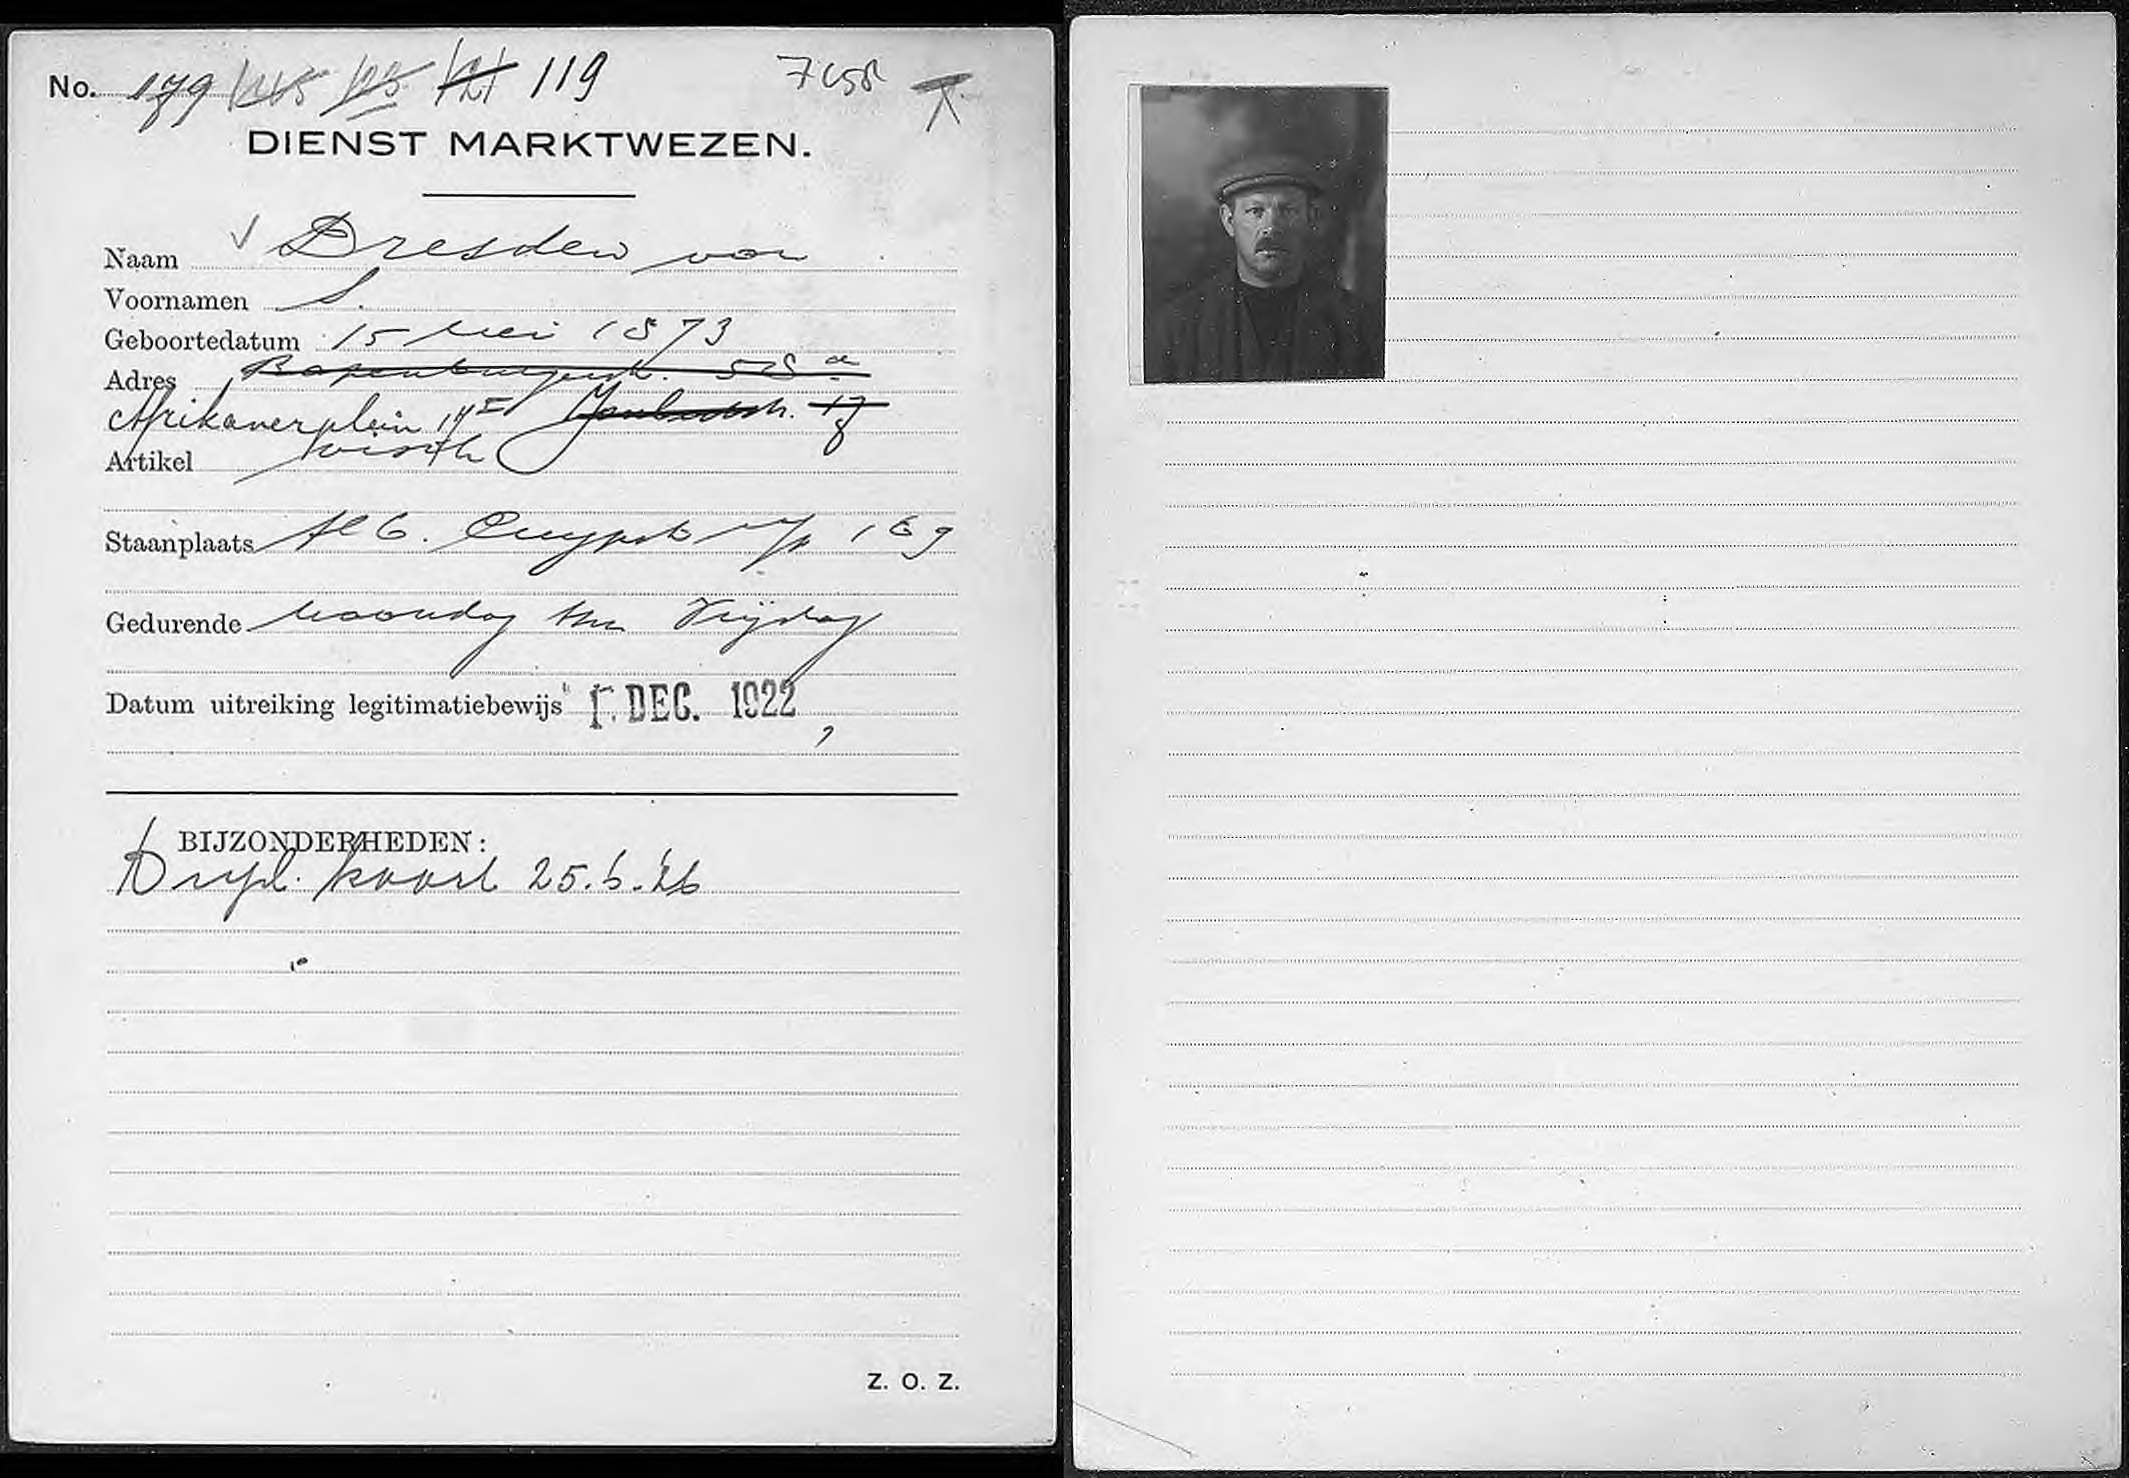 No. 179 145 123 121 119 7658
DIENST MARKTWEZEN.
Naam Dresden van
Voornamen S.
Geboortedatum 15 Mei 1873
Adres Batenburgerst. 58 a
Afrikanerplein 14 I Joubertstr. 17
Artikel visch
Staanplaats Alb. Cuypst n/p 169
Gedurende Maandag t/m Vrijdag
Datum uitreiking legitimatiebewijs 1. DEC. 1922
BIJZONDERHEDEN:
Dupl. kaart 25.6.'26
Z. O. Z.